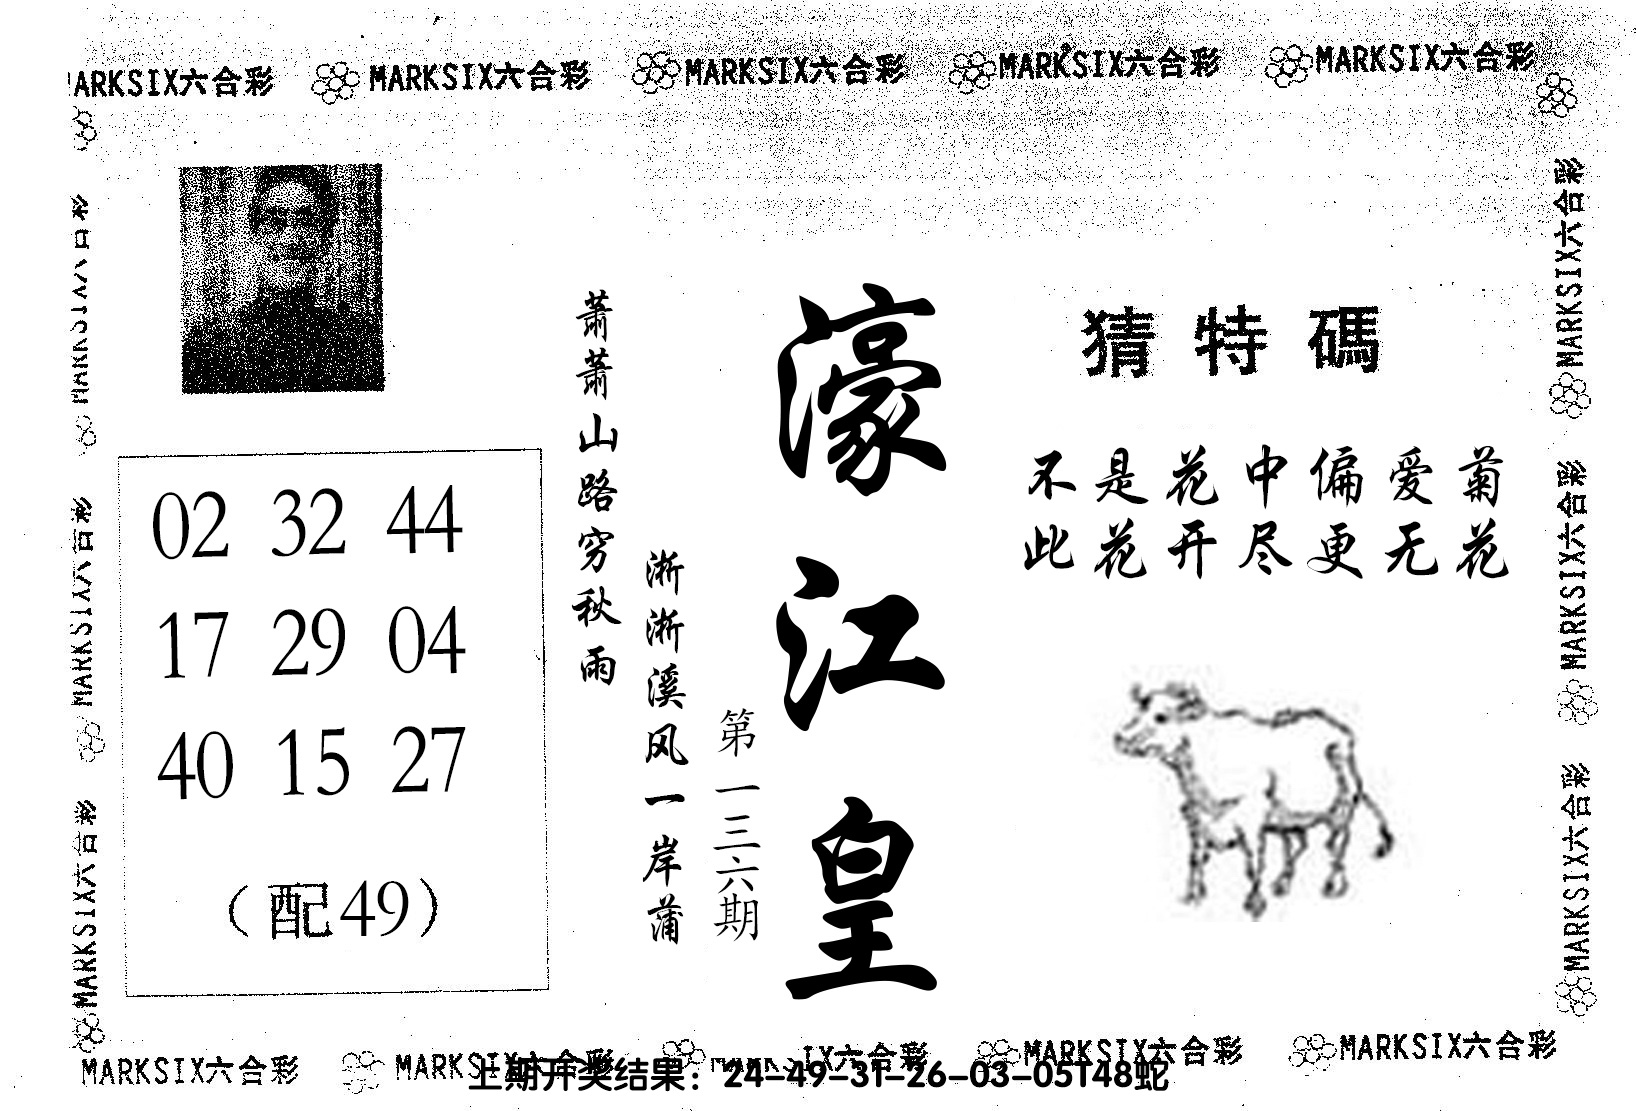 MARKSIX六合彩 MARKSIX六合彩 MARKSIX六合彩 MARKSIX六合彩 MARKSIX六合彩
猜特碼
不是花中偏爱菊
此花开尽更无花
濠江皇
第一三六期
萧萧山路穷秋雨
淅淅溪风一岸蒲
02 32 44
17 29 04
40 15 27
（配49）
MARKSIX六合彩
MARKSIX六合彩
MARKSIX六合彩
MARKSIX六合彩
MARKSIX六合彩
MARKSIX六合彩
MARKSIX六合彩 MARKSIX六合彩 IX六合彩 MARKSIX六合彩 MARKSIX六合彩
上期开奖结果：24-49-31-26-03-05T48蛇